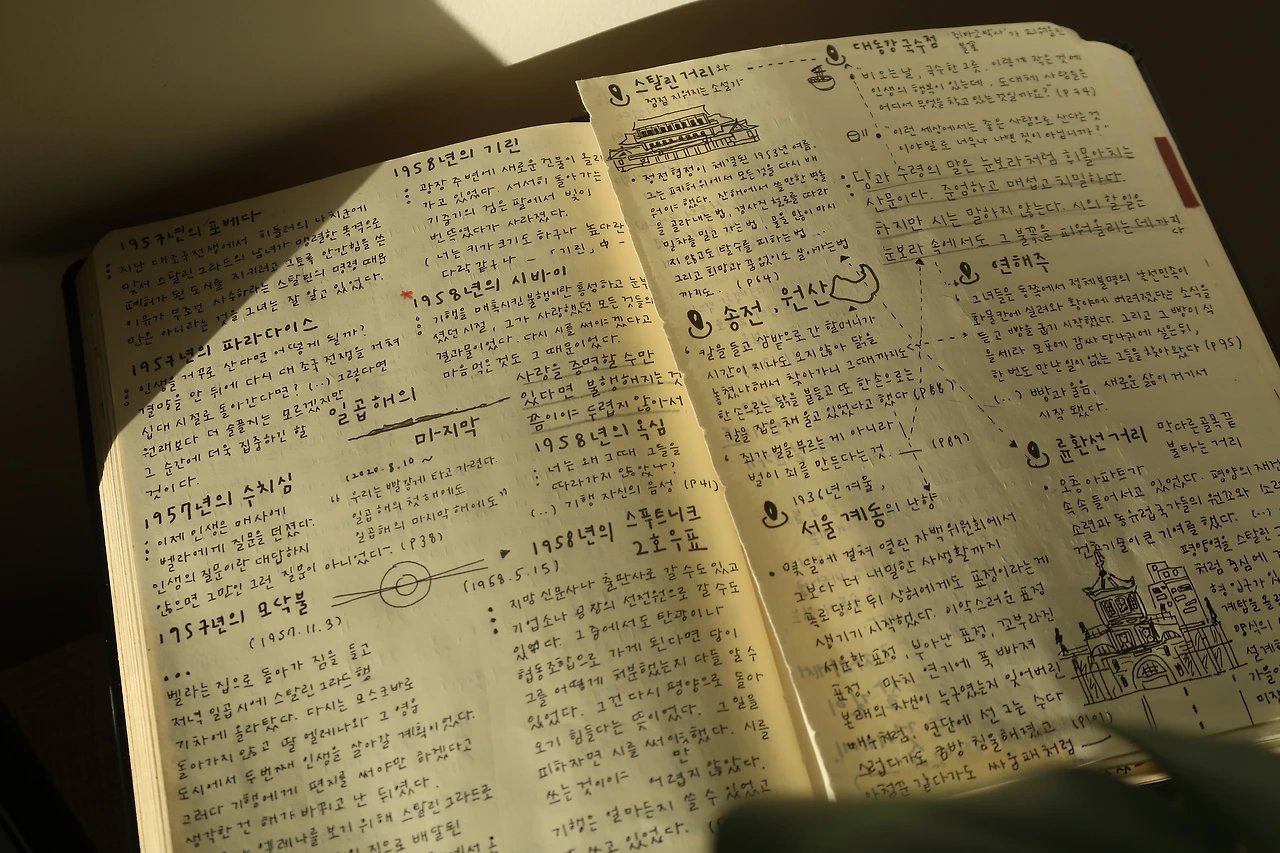 1957년의 포베다
지난 대조국전쟁에서 히틀러의 나치군에
맞서 스탈린그라드의 남녀가 맹렬한 폭격으로
폐허가 된 도시를 지키려고 그토록 안간힘을 쓴
이유가 무조건 사수하라는 스탈린의 명령 때문
만은 아니라는 것을 그녀는 잘 알고 있었다.
1957년의 파라다이스
인생을 거꾸로 산다면 어떻게 될까?
결말을 안 뒤에 다시 대조국전쟁을 거쳐
십대 시절로 돌아간다면? (...) 그렇다면
원래보다 더 슬플지는 모르겠지만
그 순간에 더욱 집중하긴 할
것이다.
1957년의 수치심
이제 인생은 매사에
벨라에게 질문을 던졌다.
인생의 질문이란 대답하지
않으면 그만인 그런 질문이 아니었다. (P38)
1957년의 모닥불
(1957.11.3)
벨라는 집으로 돌아가 짐을 들고
저녁 일곱시에 스탈린그라드행
기차에 올라탔다. 다시는 모스크바로
돌아가지 않고 딸 옐레나와 그 영웅
도시에서 두번째 인생을 살아갈 계획이었다.
그러다 기행에게 편지를 써야만 하겠다고
생각한 건 해가 바뀌고 난 뒤였다.
옐레나를 보기 위해 스탈린그라드로
집으로 배달된
1958년의 기린
광장 주변에 새로운 건물이 올라
가고 있었다. 서서히 돌아가는
기중기의 검은 팔에서 빛이
번뜩였다가 사라졌다.
(너는 키가 크기도 하구나 높다란
다락 같구나 - 「기린」中 -
*1958년의 시바이
기행을 매혹시킨 불행이란 흥성하고 눈부
셨던 시절, 그가 사랑했던 모든 것들의
결과물이었다. 다시 시를 써야겠다고
마음 먹은 것도 그 때문이었다.
사랑을 증명할 수만
있다면 불행해지는 것
쯤이야 두렵지 않아서
일곱해의
마지막
(2020.8.10 ~
"우리는 빨갛게 타고 가련다.
일곱해의 첫 해에도
일곱해의 마지막 해에도"
1958년의 욕심
너는 왜 그때 그들을
따라가지 않았나?
(..) 기행 자신의 음성 (P41)
1958년의 스푸트니크
2호우표
(1958.5.15)
지방 신문사나 출판사로 갈 수도 있고
기업소나 공장의 선전원으로 갈 수도
있었다. 그중에서도 탄광이나
협동조합으로 가게 된다면 당이
그를 어떻게 처분했는지 다들 알 수
있었다. 그건 다시 평양으로 돌아
오기 힘들다는 뜻이었다. 그 일을
피하자면 시를 써야 했다. 시를
쓰는 것이야 어렵지만 않았다.
기행은 얼마든지 쓸 수 있었고
쓰고 있었다.
스탈린 거리와
점점 지워지는 소설가
정전협정이 체결된 1953년 여름.
그는 폐허 위에서 모든 것을 다시 배
워야 했다. 잔해에서 쓸 만한 벽돌
을 골라내는 법, 경사진 철로를 따라
밀차를 밀고 가는 법, 물을 많이 마시
지 않고도 탈수를 피하는 법 ...
그리고 희망과 끝없이도 살아가는 법
까지도. (P64)
송전, 원산
칼을 들고 삼밭으로 간 할머니가
시간이 지나도 오지 않아 닭을
놓쳤나해서 찾아가니 그때까지도
한 손으로는 닭을 붙들고 또 한 손으로는
칼을 잡은 채 울고 있었다고 했다 (P88)
죄가 벌을 부르는 게 아니라
벌이 죄를 만든다는 것. (P89)
1936년 겨울,
서울 계동의 난향
몇달에 걸쳐 열린 자백위원회에서
그보다 더 내밀한 사생활까지
폭로당한 뒤 상허에게도 표정이라는게
생기기 시작했다. 이악스러운 표정
서운한 표정, 부아난 표정, 꼬부라진
표정. 마치 연기에 푹 빠져
본래의 자신이 누구였는지 잊어버린
배우처럼. 연단에 선 그는 수다
스럽다가도 금방 침울해졌고 (P101)
아첨꾼 같다가도 싸움패처럼
대동강국수점
비오는날, 국수 한 그릇. 이렇게 작은 것에
인생의 행복이 있는데, 도대체 사람들은
어디서 무엇을 하고 있는 것일까요? (P74)
"이런 세상에서는 좋은 사람으로 산다는 것
이야말로 너무나 나쁜 짓이 아닙니까?"
당과 수령의 말은 눈보라처럼 휘몰아치는
산문이다. 준엄하고 매섭고 치밀하다.
하지만 시는 말하지 않는다. 시의 할 일은
눈보라 속에서도 그 불꽃을 피워올리는 데까지
다
연해주
그녀들은 동쪽에서 정체불명의 조선민족이
화물칸에 실려와 황야에 버려졌다는 소식을
듣고 빵을 굽기 시작했다. 그리고 그 빵이 식
을세라 모포에 감싸 당나귀에 실은 뒤,
한 번도 만난 일이 없는 그들을 찾아왔다 (P95)
(...) 빵과 울음, 새로운 삶이 거기서
시작 됐다.
륜환선 거리 막다른골목끝
불타는 거리
오층 아파트가
속속 들어서고 있었다. 평양의 재건
소련과 동유럽 국가들의 원조와
건축기술이 큰 기여를 했다. (..)
평양역을 스탈린
처럼 중심에